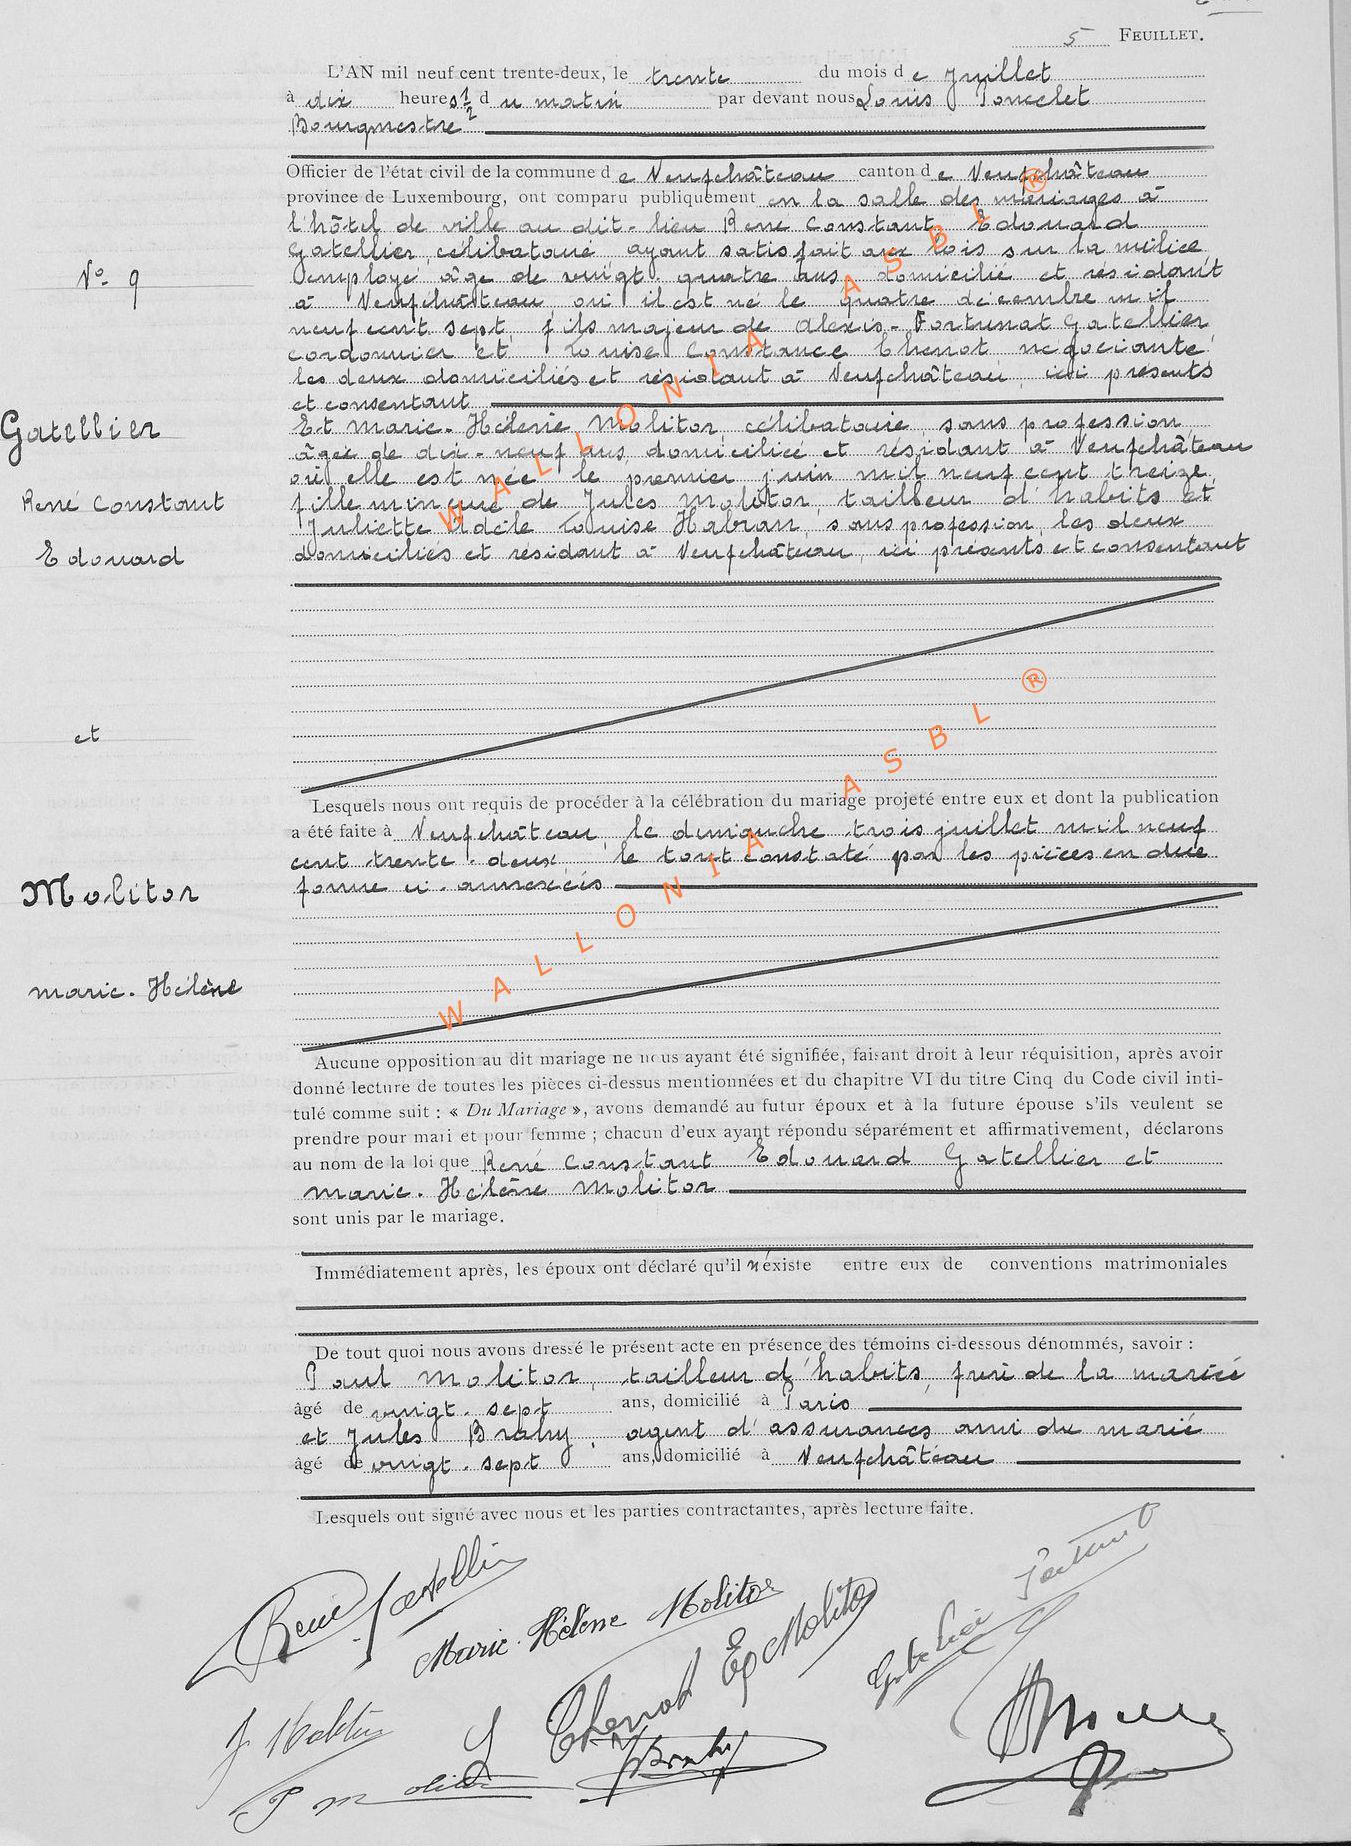 5 FEUILLET.
L'AN mil neuf cent trente-deux, le trente du mois de Juillet
à dix heures 1/2 du matin par devant nous Louis Poncelet
Bourgmestre
Officier de l'état civil de la commune de Neufchâteau canton de Neufchâteau
province de Luxembourg, ont comparu publiquement en la salle des mariages à
l'hôtel de ville au dit-lieu René Constant Edouard
Gatellier, célibataire ayant satisfait aux lois sur la milice
employé âgé de vingt-quatre ans, domicilié et résidant
à Neufchâteau où il est né le quatre décembre mil
neuf cent sept, fils majeur de Alexis-Fortunat Gatellier
cordonnier et Louise Constance Thenot, négociante
les deux domiciliés et résidant à Neufchâteau, ici présents
et consentant
Et Marie-Hélène Molitor, célibataire sans profession
âgée de dix-neuf ans, domiciliée et résidant à Neufchâteau
où elle est née le premier juin mil neuf cent treize,
fille mineure de Jules Molitor, tailleur d'habits et
Juliette Adèle Louise Habran, sans profession, les deux
domiciliés et résidant à Neufchâteau, ici présents et consentant
N° 9
Gatellier
René Constant
Edouard
et
Molitor
Marie-Hélène
Lesquels nous ont requis de procéder à la célébration du mariage projeté entre eux et dont la publication
a été faite à Neufchâteau, le dimanche trois juillet mil neuf
cent trente-deux, le tout constaté par les pièces en due
forme ci-annexées
Aucune opposition au dit mariage ne nous ayant été signifiée, faisant droit à leur réquisition, après avoir
donné lecture de toutes les pièces ci-dessus mentionnées et du chapitre VI du titre Cinq du Code civil inti-
tulé comme suit : « Du Mariage », avons demandé au futur époux et à la future épouse s'ils veulent se
prendre pour mari et pour femme ; chacun d'eux ayant répondu séparément et affirmativement, déclarons
au nom de la loi que René Constant Edouard Gatellier et
Marie-Hélène Molitor
sont unis par le mariage.
Immédiatement après, les époux ont déclaré qu'il n'existe entre eux de conventions matrimoniales
De tout quoi nous avons dressé le présent acte en présence des témoins ci-dessous dénommés, savoir :
Paul Molitor, tailleur d'habits, frère de la mariée
âgé de vingt-sept ans, domicilié à Paris
et Jules Brahy, agent d'assurances ami du marié
âgé de vingt-sept ans, domicilié à Neufchâteau
Lesquels ont signé avec nous et les parties contractantes, après lecture faite.
René Gatellier
Marie-Hélène Molitor
Thenot Ep Molitor
J Molitor
P Molitor
J Brahy
WALLONIA ASBL ®
WALLONIA ASBL ®